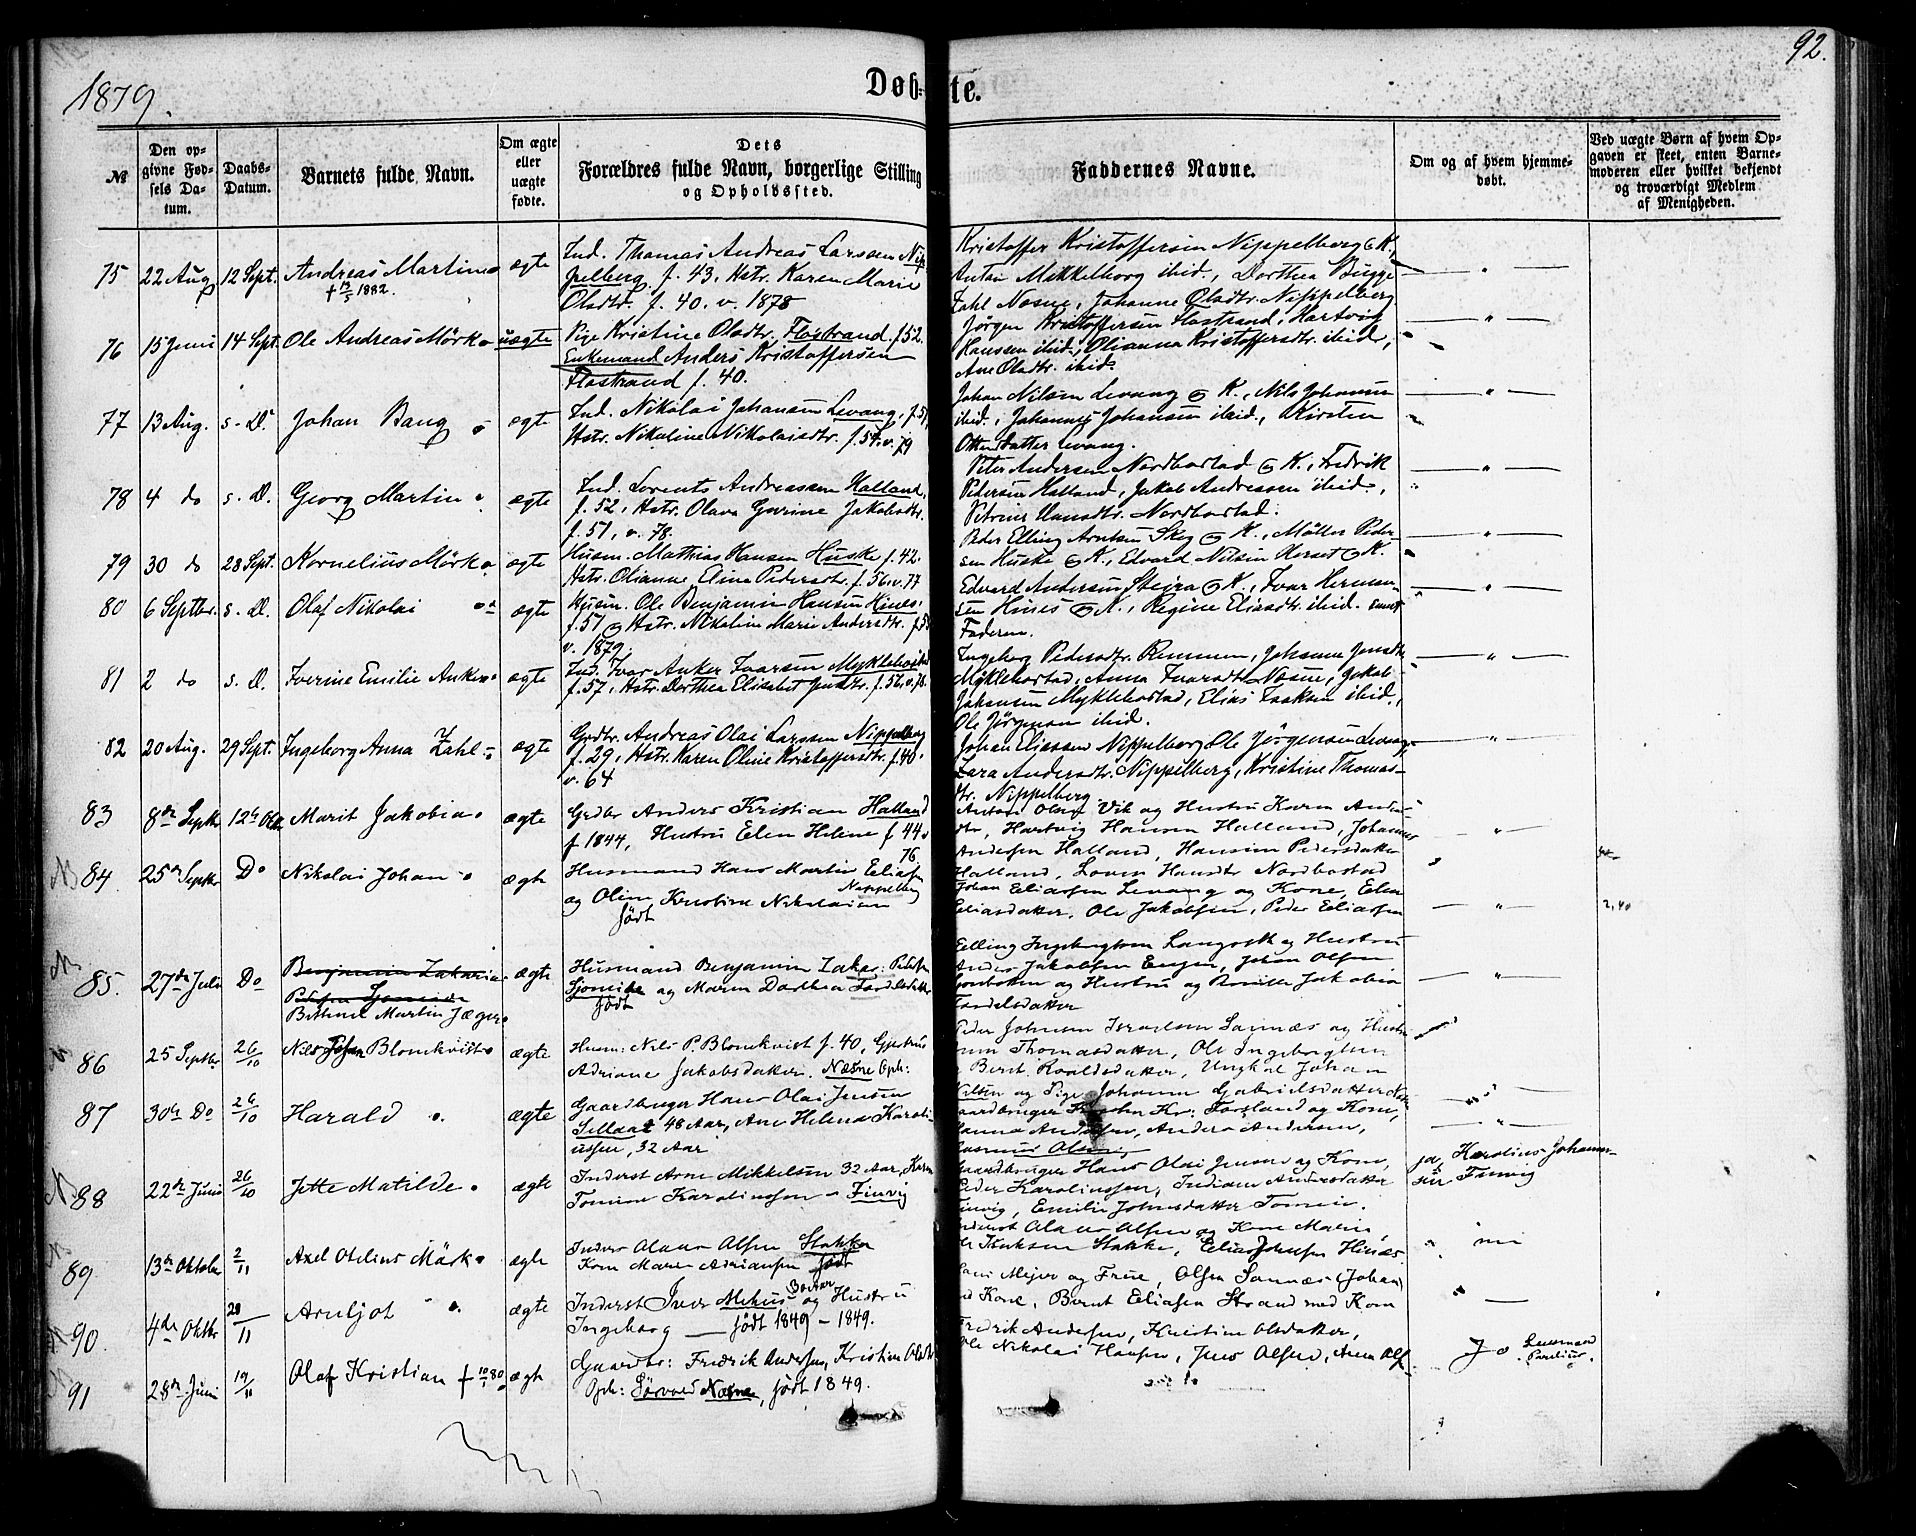 1879.
Døb-
te.
92.
№
Den opgivne Fødsels Datum.
Daabs-Datum.
Barnets fulde Navn.
Om ægte eller uægte fødte.
Dets Forældres fulde Navn, borgerlige Stilling og Opholdssted.
Faddernes Navne.
Om og af hvem hjemmedøbt.
Ved uægte Børn af hvem Opgaven er skeet, enten Barnemoderen eller hvilket bekjendt og troværdigt Medlem af Menigheden.
75 22 Aug 12 Sept. Andreas Martin ægte
Ind. Thomas Andreas Larssen Nip-
pelberg f. 43, Hstr. Karen Marie
Olsdtr. f. 40. v. 1878
Kristoffer Kristoffersen Nippelberg & K.,
Antin Mikkelborg ibid., Dorthea Bugge
Zahl Næsne, Johanne Olsdtr. Nippelberg
76 15 Juni 14 Sept. Ole Andreas Mörk uægte
Pige Kristine Olsdtr. Flostrand f 52.
Enkemand Anders Kristoffersen
Flostrand f. 40.
Jörgen Kristoffersen Flostrand, Hartvig
Hanssen ibid., Olianna Kristoffersdtr. ibid,
Ane Olsdtr. ibid.
77 13 Aug. s. D. Johan Bang ægte
Ind. Nikolai Johansen Levang, f. 51,
Hstr. Nikoline Nikolaisdtr. f. 54. v. 79
Johan Nilsen Levang & K., Nils Johansen
ibid., Johannes Johansen ibid., Kirsten
Ottersdatter Levang.
78 4 do s. D. Georg Martin ægte
Ind. Lorents Andreassen Halland,
f. 52, Hstr. Olava Gurine Jakobsdtr.
f. 51, v. 78.
Peter Andersen Nordbostad & K., Fredrik
Pedersen Halland, Jakob Andreasen ibid.,
Petrine Hansdtr. Nordbostad.
79 30 do 28 Sept. Kornelius Mörk ægte
Husm. Mathias Hansen Huske f. 42.
Hstr. Olianne Elina Pedersdtr. f. 56. v. 77
Peder Elling Arntsen Skog & K., Möller Peder-
sen Huske & K., Edvard Nilsen Herset & K.
80 6 Septbr. s. D. Olaf Nikolai ægte
Husm. Ole Benjamin Hansen Hines,
f. 57 & Hstr. Nikoline Marie Andersdtr.
v. 1879.
Edvard Andersen Steira & K., Ivar Herman-
sen Hines & K., Regine Eliasdtr. ibid. samt
Faderen.
81 2 do s. D. Iverine Emilie Anker ægte
Ind. Ivar Anker Ivarsen Myklebostad
f. 57, Hstr. Dorthea Elisabet Jensdtr. f. 56. v. 78.
Ingeborg Pedersdtr. Remmen, Johanna Jensdtr.
Myklebostad, Anna Ivarsdtr. Næsne, Jakob
Johansen Myklebostad, Elias Isaksen ibid.,
Ole Jörgensen ibid.
82 20 Aug. 29 Sept. Ingeborg Anna Zahl ægte
Grdbr. Andreas Olai Larssen Nippelberg
f. 29, Hstr. Karen Oline Kristoffersdtr. f. 40.
v. 64
Johan Eliassen Nippelberg, Ole Jörgensen Levang,
Zara Andersdtr. Nippelberg, Kristine Thomas-
dtr. Nippelberg.
83 8de Septbr 12te Oktr Marit Jakobia ægte
Grdbr Anders Kristian Halland
f 1844, Hustru Elen Helene f 44
76
Anton Olsen Vik og Hustru Karen Anders
dtr, Hartvig Hansen Halland, Johannes
Andersen Halland, Hansine Pedersdatter
Halland, Lovise Hansdtr Nordbostad
NB 84. 25de Septbr Do Nikolai Johan ægte
Husmand Hans Martin Eliasen
Nippelberg
og Oline Kristine Nikolaisen
født
Johan Eliassen Levang og Kone, Elen
Eliasdatter, Ole Jakobsen, Peder Eliassen
2,40
85. 27de Juli Do Benjamin Zakaria
Bertinel Martin Jæger ægte
Husmand Benjamin Zakar: Pedersen
og Maren Dorthea
født
Elling Ingebrigtsen Langseth og Hustru
Anders Jakobsen Engen, Johan Olsen
og Hustru og Jakobia
86 25 Septbr 26/10 Nils Johan Blomkvist ægte
Husm: Nils P. Blomkvist f. 40, Hustru
Adriane Jakobsdatter. Næsne Oph:
Peder Johnsen Israelsen Sannæs og Hustru
Thomasdatter, Ole Ingebrigtsen
Bernt Roaldsdatter, Ungkal Johan
Nilsen og Pige Johanna Gabrielsdatter
87 30te Do 26/10 Harald ægte
Gaardbruger Hans Olai Jensen
48 Aar, Ane Helena Karoli-
ussen, 32 Aar
Gaardbruger Kr: Forsland og Kone,
Hanna Andersen, Anders Andersen,
Rasmus Olsen,
88 22de Juni 26/10 Jette Matilde ægte
Inderst Arne Mikkelsen 32 Aar, Karen
Tomine Karolinssen Finvig
Gaardbruger Hans Olai Jensen og Kone,
Peder Karolinssen, Indiane Andersdatter
Finvig, Emilie Johnsdatter Tomine.
ja, Karolius Johann-
sen Finvig
89. 13de Oktober 2/11 Axel Otelius Mörk ægte
Inderst Olaus Olsen Stokke
Kone Maren Adriansen født
Inderst Olaus Olsen og Kone Maren,
Isaksen Stokke, Elias Johnsen Hinæs
nei
90. 4de Oktbr 20/11 Arnljot ægte
Inderst Iver og Hustru
Ingeborg født 1849 - 1849.
Mejer og Frue, Olsen Sannæs (Johan)
med Kone, Bernt Eliasen Strand med Kone
91 28de Juni 19/11 Olaf Kristian † ægte
Gaardbr: Fredrik Andersen, Kristine Olsdtr
Oph: Sörvold Næsne, født 1849.
Fredrik Andersen, Kristine Olsdatter,
Ole Nikolai Hansen, Jens Olsen, Anna Ols
Ja Lensmand